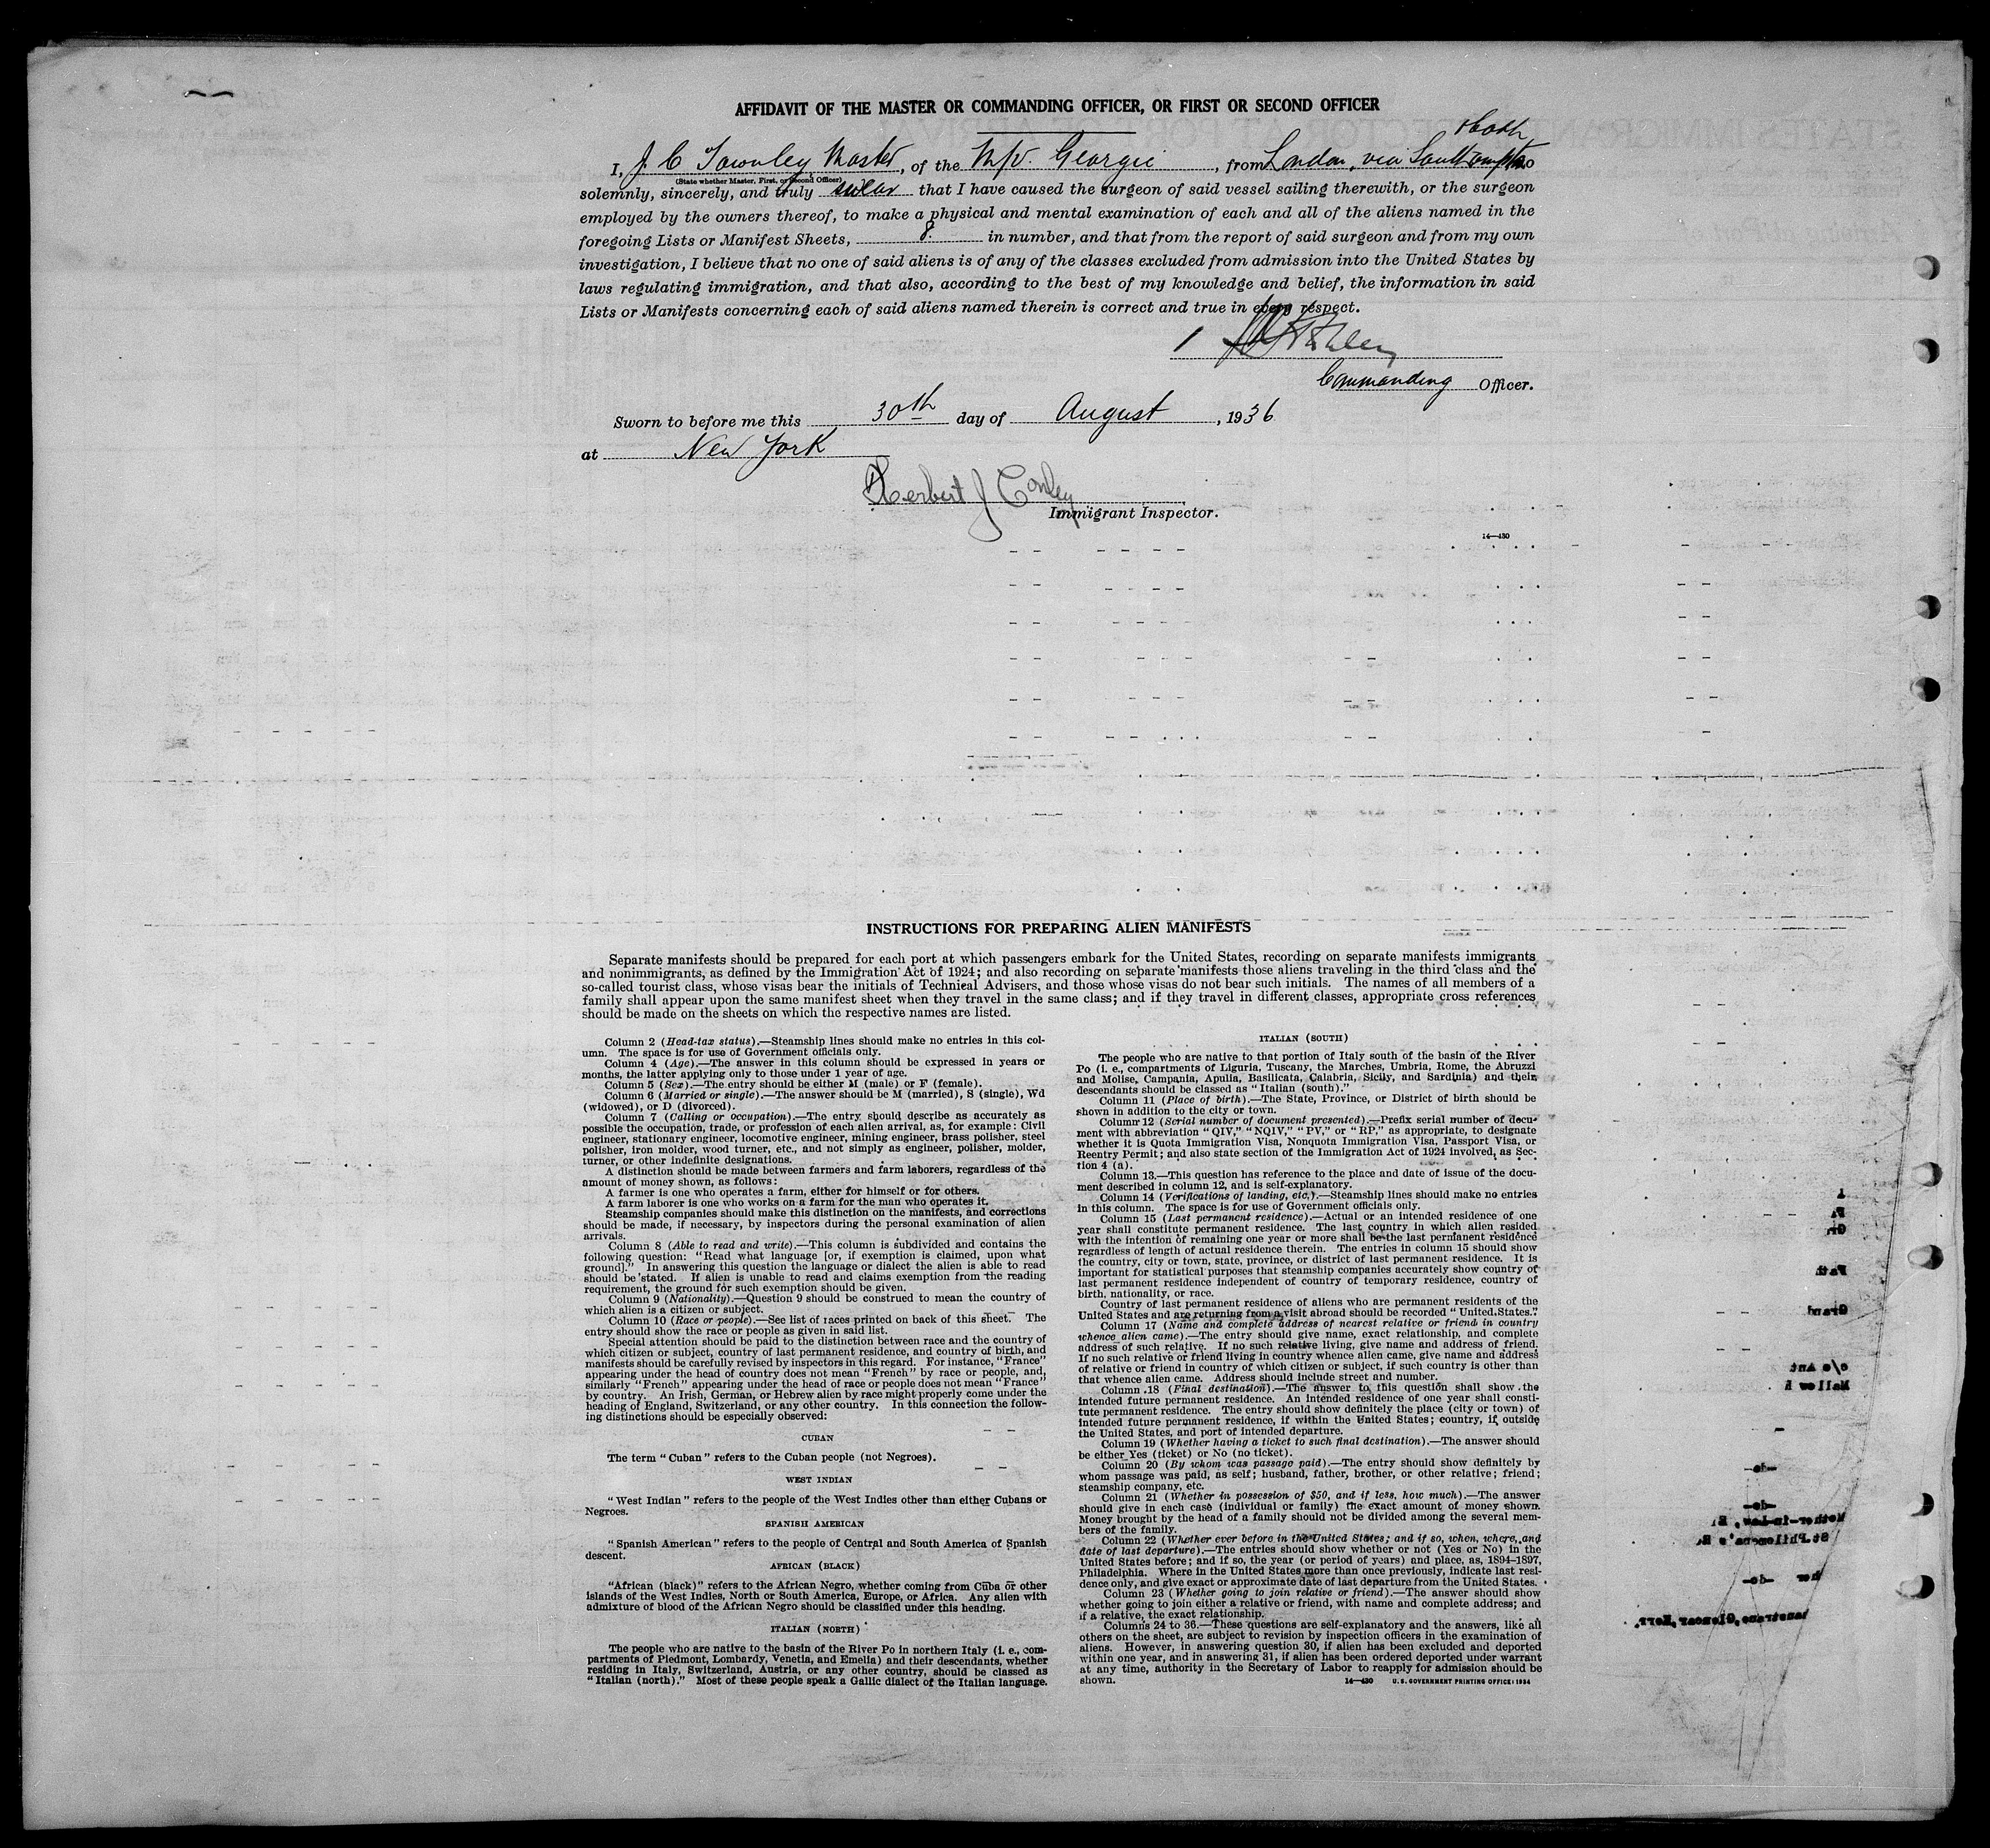 AFFIDAVIT OF THE MASTER OR COMMANDING OFFICER, OR FIRST OR SECOND OFFICER
I, J C Townley Master, of the M/V. Georgic, from London, via Southampton do
(State whether Master, First, or Second Officer)
solemnly, sincerely, and truly swear that I have caused the surgeon of said vessel sailing therewith, or the surgeon
employed by the owners thereof, to make a physical and mental examination of each and all of the aliens named in the
foregoing Lists or Manifest Sheets, 8. in number, and that from the report of said surgeon and from my own
investigation, I believe that no one of said aliens is of any of the classes excluded from admission into the United States by
laws regulating immigration, and that also, according to the best of my knowledge and belief, the information in said
Lists or Manifests concerning each of said aliens named therein is correct and true in every respect.
Commanding Officer.
Sworn to before me this 30th day of August, 1936
at New York
Herbert J Conley
Immigrant Inspector.
14—430
INSTRUCTIONS FOR PREPARING ALIEN MANIFESTS
Separate manifests should be prepared for each port at which passengers embark for the United States, recording on separate manifests immigrants
and nonimmigrants, as defined by the Immigration Act of 1924; and also recording on separate manifests those aliens traveling in the third class and the
so-called tourist class, whose visas bear the initials of Technical Advisers, and those whose visas do not bear such initials. The names of all members of a
family shall appear upon the same manifest sheet when they travel in the same class; and if they travel in different classes, appropriate cross references
should be made on the sheets on which the respective names are listed.
Column 2 (Head-tax status).—Steamship lines should make no entries in this col-
umn. The space is for use of Government officials only.
Column 4 (Age).—The answer in this column should be expressed in years or
months, the latter applying only to those under 1 year of age.
Column 5 (Sex).—The entry should be either M (male) or F (female).
Column 6 (Married or single).—The answer should be M (married), S (single), Wd
(widowed), or D (divorced).
Column 7 (Calling or occupation).—The entry should describe as accurately as
possible the occupation, trade, or profession of each alien arrival, as, for example: Civil
engineer, stationary engineer, locomotive engineer, mining engineer, brass polisher, steel
polisher, iron molder, wood turner, etc., and not simply as engineer, polisher, molder,
turner, or other indefinite designations.
A distinction should be made between farmers and farm laborers, regardless of the
amount of money shown, as follows:
A farmer is one who operates a farm, either for himself or for others.
A farm laborer is one who works on a farm for the man who operates it.
Steamship companies should make this distinction on the manifests, and corrections
should be made, if necessary, by inspectors during the personal examination of alien
arrivals.
Column 8 (Able to read and write).—This column is subdivided and contains the
following question: "Read what language [or, if exemption is claimed, upon what
ground]." In answering this question the language or dialect the alien is able to read
should be stated. If alien is unable to read and claims exemption from the reading
requirement, the ground for such exemption should be given.
Column 9 (Nationality).—Question 9 should be construed to mean the country of
which alien is a citizen or subject.
Column 10 (Race or people).—See list of races printed on back of this sheet. The
entry should show the race or people as given in said list.
Special attention should be paid to the distinction between race and the country of
which citizen or subject, country of last permanent residence, and country of birth, and
manifests should be carefully revised by inspectors in this regard. For instance, "France"
appearing under the head of country does not mean "French" by race or people, and,
similarly "French" appearing under the head of race or people does not mean "France"
by country. An Irish, German, or Hebrew alien by race might properly come under the
heading of England, Switzerland, or any other country. In this connection the follow-
ing distinctions should be especially observed:
CUBAN
The term "Cuban" refers to the Cuban people (not Negroes).
WEST INDIAN
"West Indian" refers to the people of the West Indies other than either Cubans or
Negroes.
SPANISH AMERICAN
"Spanish American" refers to the people of Central and South America of Spanish
descent.
AFRICAN (BLACK)
"African (black)" refers to the African Negro, whether coming from Cuba or other
islands of the West Indies, North or South America, Europe, or Africa. Any alien with
admixture of blood of the African Negro should be classified under this heading.
ITALIAN (NORTH)
The people who are native to the basin of the River Po in northern Italy (i. e., com-
partments of Piedmont, Lombardy, Venetia, and Emelia) and their descendants, whether
residing in Italy, Switzerland, Austria, or any other country, should be classed as
"Italian (north)." Most of these people speak a Gallic dialect of the Italian language.
ITALIAN (SOUTH)
The people who are native to that portion of Italy south of the basin of the River
Po (i. e., compartments of Liguria, Tuscany, the Marches, Umbria, Rome, the Abruzzi
and Molise, Campania, Apulia, Basilicata, Calabria, Sicily, and Sardinia) and their
descendants should be classed as "Italian (south)."
Column 11 (Place of birth).—The State, Province, or District of birth should be
shown in addition to the city or town.
Column 12 (Serial number of document presented).—Prefix serial number of docu-
ment with abbreviation "QIV," "NQIV," "PV," or "RP," as appropriate, to designate
whether it is Quota Immigration Visa, Nonquota Immigration Visa, Passport Visa, or
Reentry Permit; and also state section of the Immigration Act of 1924 involved, as Sec-
tion 4 (a).
Column 13.—This question has reference to the place and date of issue of the docu-
ment described in column 12, and is self-explanatory.
Column 14 (Verifications of landing, etc.).—Steamship lines should make no entries
in this column. The space is for use of Government officials only.
Column 15 (Last permanent residence).—Actual or an intended residence of one
year shall constitute permanent residence. The last country in which alien resided
with the intention of remaining one year or more shall be the last permanent residence
regardless of length of actual residence therein. The entries in column 15 should show
the country, city or town, state, province, or district of last permanent residence. It is
important for statistical purposes that steamship companies accurately show country of
last permanent residence independent of country of temporary residence, country of
birth, nationality, or race.
Country of last permanent residence of aliens who are permanent residents of the
United States and are returning from a visit abroad should be recorded "United States."
Column 17 (Name and complete address of nearest relative or friend in country
whence alien came).—The entry should give name, exact relationship, and complete
address of such relative. If no such relative living, give name and address of friend.
If no such relative or friend living in country whence alien came, give name and address
of relative or friend in country of which citizen or subject, if such country is other than
that whence alien came. Address should include street and number.
Column 18 (Final destination).—The answer to this question shall show the
intended future permanent residence. An intended residence of one year shall consti-
tute permanent residence. The entry should show definitely the place (city or town) of
intended future permanent residence, if within the United States; country, if outside
the United States, and port of intended departure.
Column 19 (Whether having a ticket to such final destination).—The answer should
be either Yes (ticket) or No (no ticket).
Column 20 (By whom was passage paid).—The entry should show definitely by
whom passage was paid, as self; husband, father, brother, or other relative; friend;
steamship company, etc.
Column 21 (Whether in possession of $50, and if less, how much).—The answer
should give in each case (individual or family) the exact amount of money shown.
Money brought by the head of a family should not be divided among the several mem-
bers of the family.
Column 22 (Whether ever before in the United States; and if so, when, where, and
date of last departure).—The entries should show whether or not (Yes or No) in the
United States before; and if so, the year (or period of years) and place, as, 1894–1897,
Philadelphia. Where in the United States more than once previously, indicate last resi-
dence only, and give exact or approximate date of last departure from the United States.
Column 23 (Whether going to join relative or friend).—The answer should show
whether going to join either a relative or friend, with name and complete address; and
if a relative, the exact relationship.
Columns 24 to 36.—These questions are self-explanatory and the answers, like all
others on the sheet, are subject to revision by inspection officers in the examination of
aliens. However, in answering question 30, if alien has been excluded and deported
within one year, and in answering 31, if alien has been ordered deported under warrant
at any time, authority in the Secretary of Labor to reapply for admission should be
shown.
14—430 U. S. GOVERNMENT PRINTING OFFICE: 1934